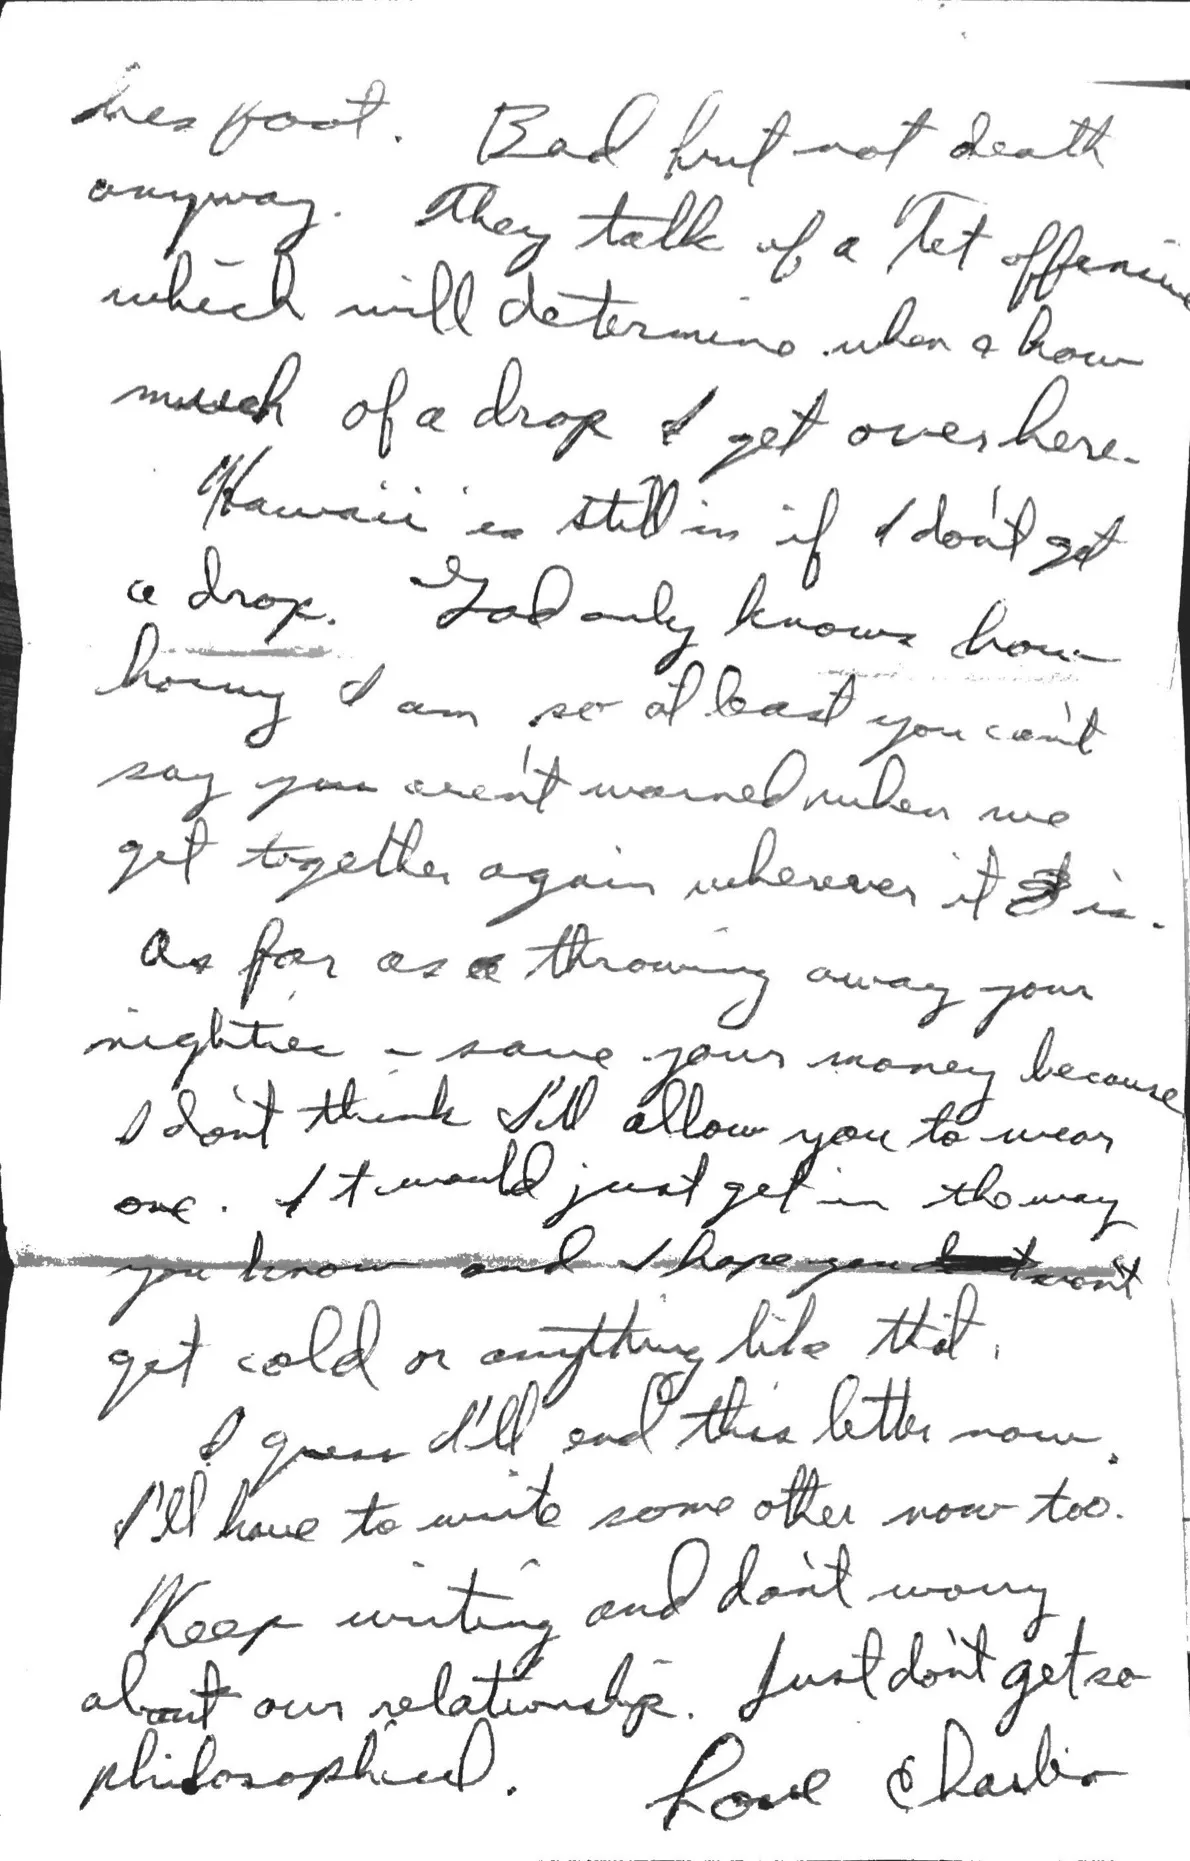 his foot. Bad but not death
anyway. They talk of a Tet offensive
which will determine when & how
much of a drop I get over here.
Hawaii is still in if I don't get
a drop. God only knows how
horny I am so at least you can't
say you aren't warned when we
get together again wherever it is.
As far as throwing away your
nightie - save your money because
I don't think I'll allow you to wear
one. It would just get in the way
you know and I hope you won't
get cold or anything like that.
I guess I'll end this letter now.
I'll have to write some other now too.
Keep writing and don't worry
about our relationship. Just don't get so
philosophical. Love Charlie